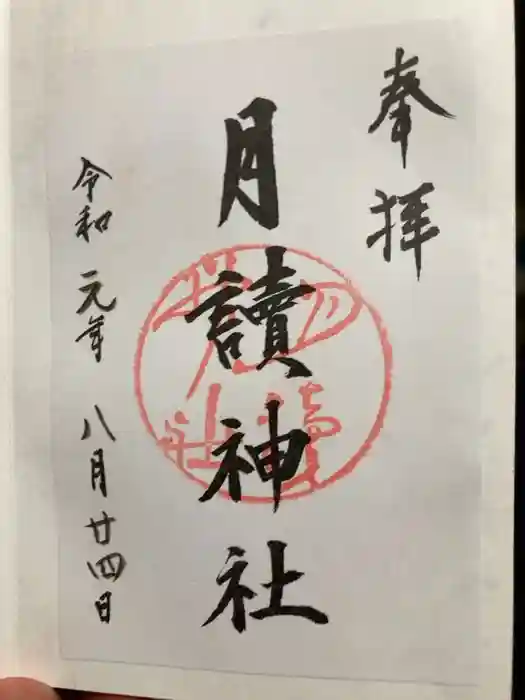 奉拝
月讀神社
令和元年八月廿四日